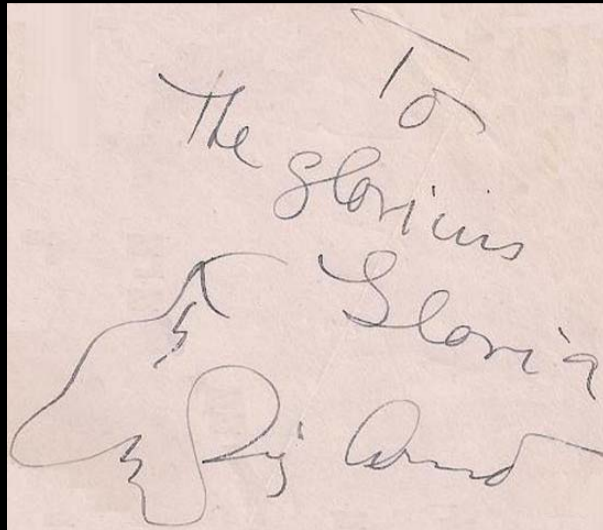 To
The glorious
Gloria
Sig Arno